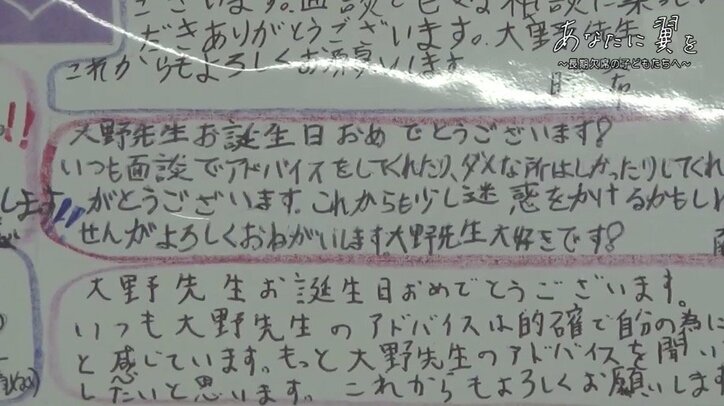 ございます。面談で色々な相談に
だきありがとうございます。大野先生
これからもよろしくお願いします。
あなたに翼を
〜長期欠席の子どもたちへ〜
!!
大野先生お誕生日おめでとうございます!
いつも面談でアドバイスをしてくれたり、ダメな所はしかったりしてくれ
がとうございます。これからも少し迷惑をかけるかもしれ
せんがよろしくおねがいします大野先生大好きです!
します
大野先生お誕生日おめでとうございます。
いつも大野先生のアドバイスは的確で自分の為に
と感じています。もっと大野先生のアドバイスを聞い
したいと思います。これからもよろしくお願いします